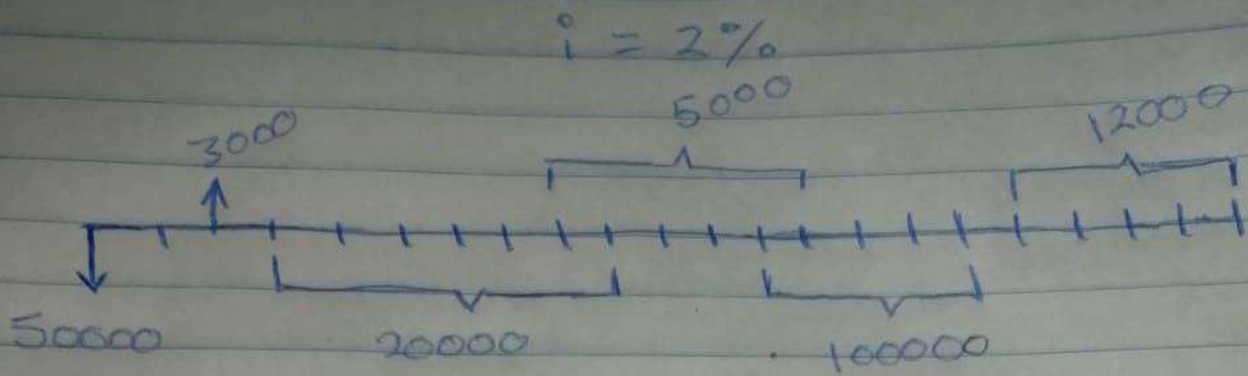 i = 2%
3000 5000 12000
50000 20000 100000